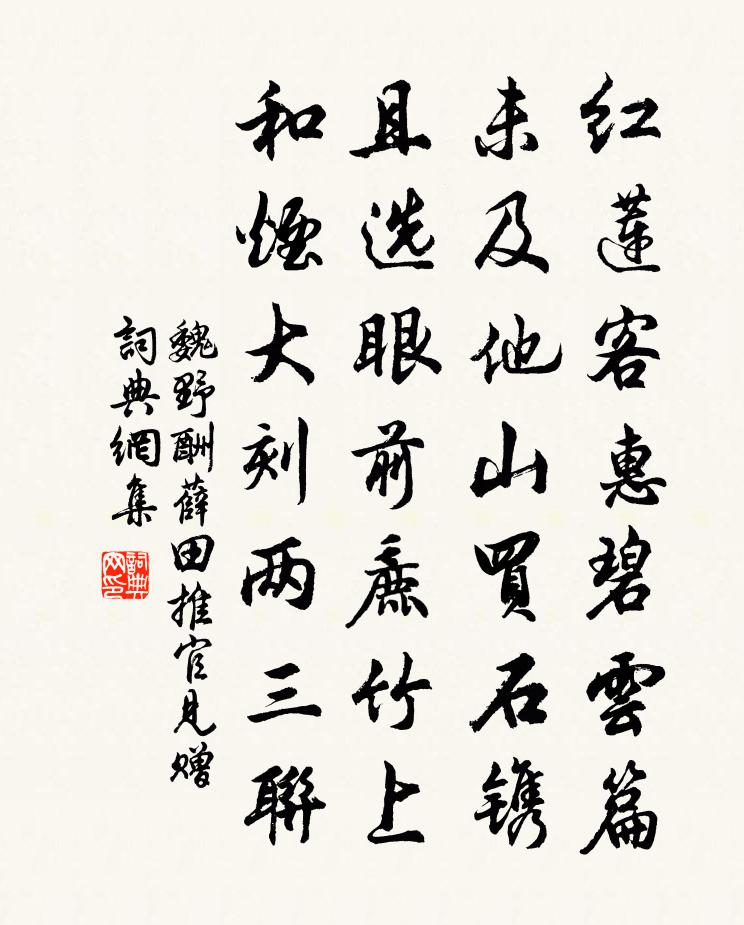 红蓮客惠碧雲篇
未及他山買石鎸
且选眼前麁竹上
和煙大刻两三聯
魏野酬薛田推官見赠
詞典網集
詞典网印